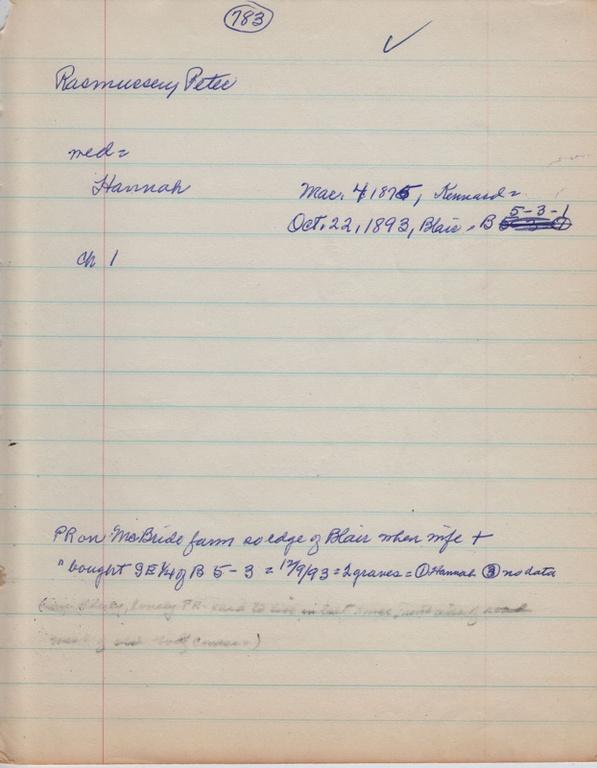 783
✓
Rasmussen, Peter
med =
Hannah Mac. 4, 1875, Kennard =
Oct. 22, 1893, Blair, B 5-3-1
ch 1
PR on McBride farm so edge of Blair when wife +
" bought SE 1/4 of B 5-3 = 12/9/93 = 2 graves = ① Hannah ③ no data
lonely PR. said to live in tent